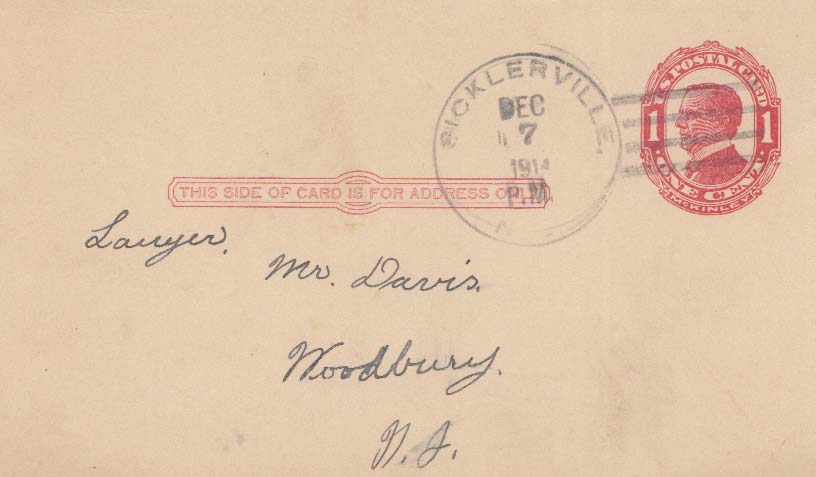 SICKLERVILLE,
DEC
7
1914
P.M.
U.S. POSTAL CARD
1 1
ONE CENT
McKINLEY
THIS SIDE OF CARD IS FOR ADDRESS
Lawyer.
Mr. Davis.
Woodbury.
N. J.